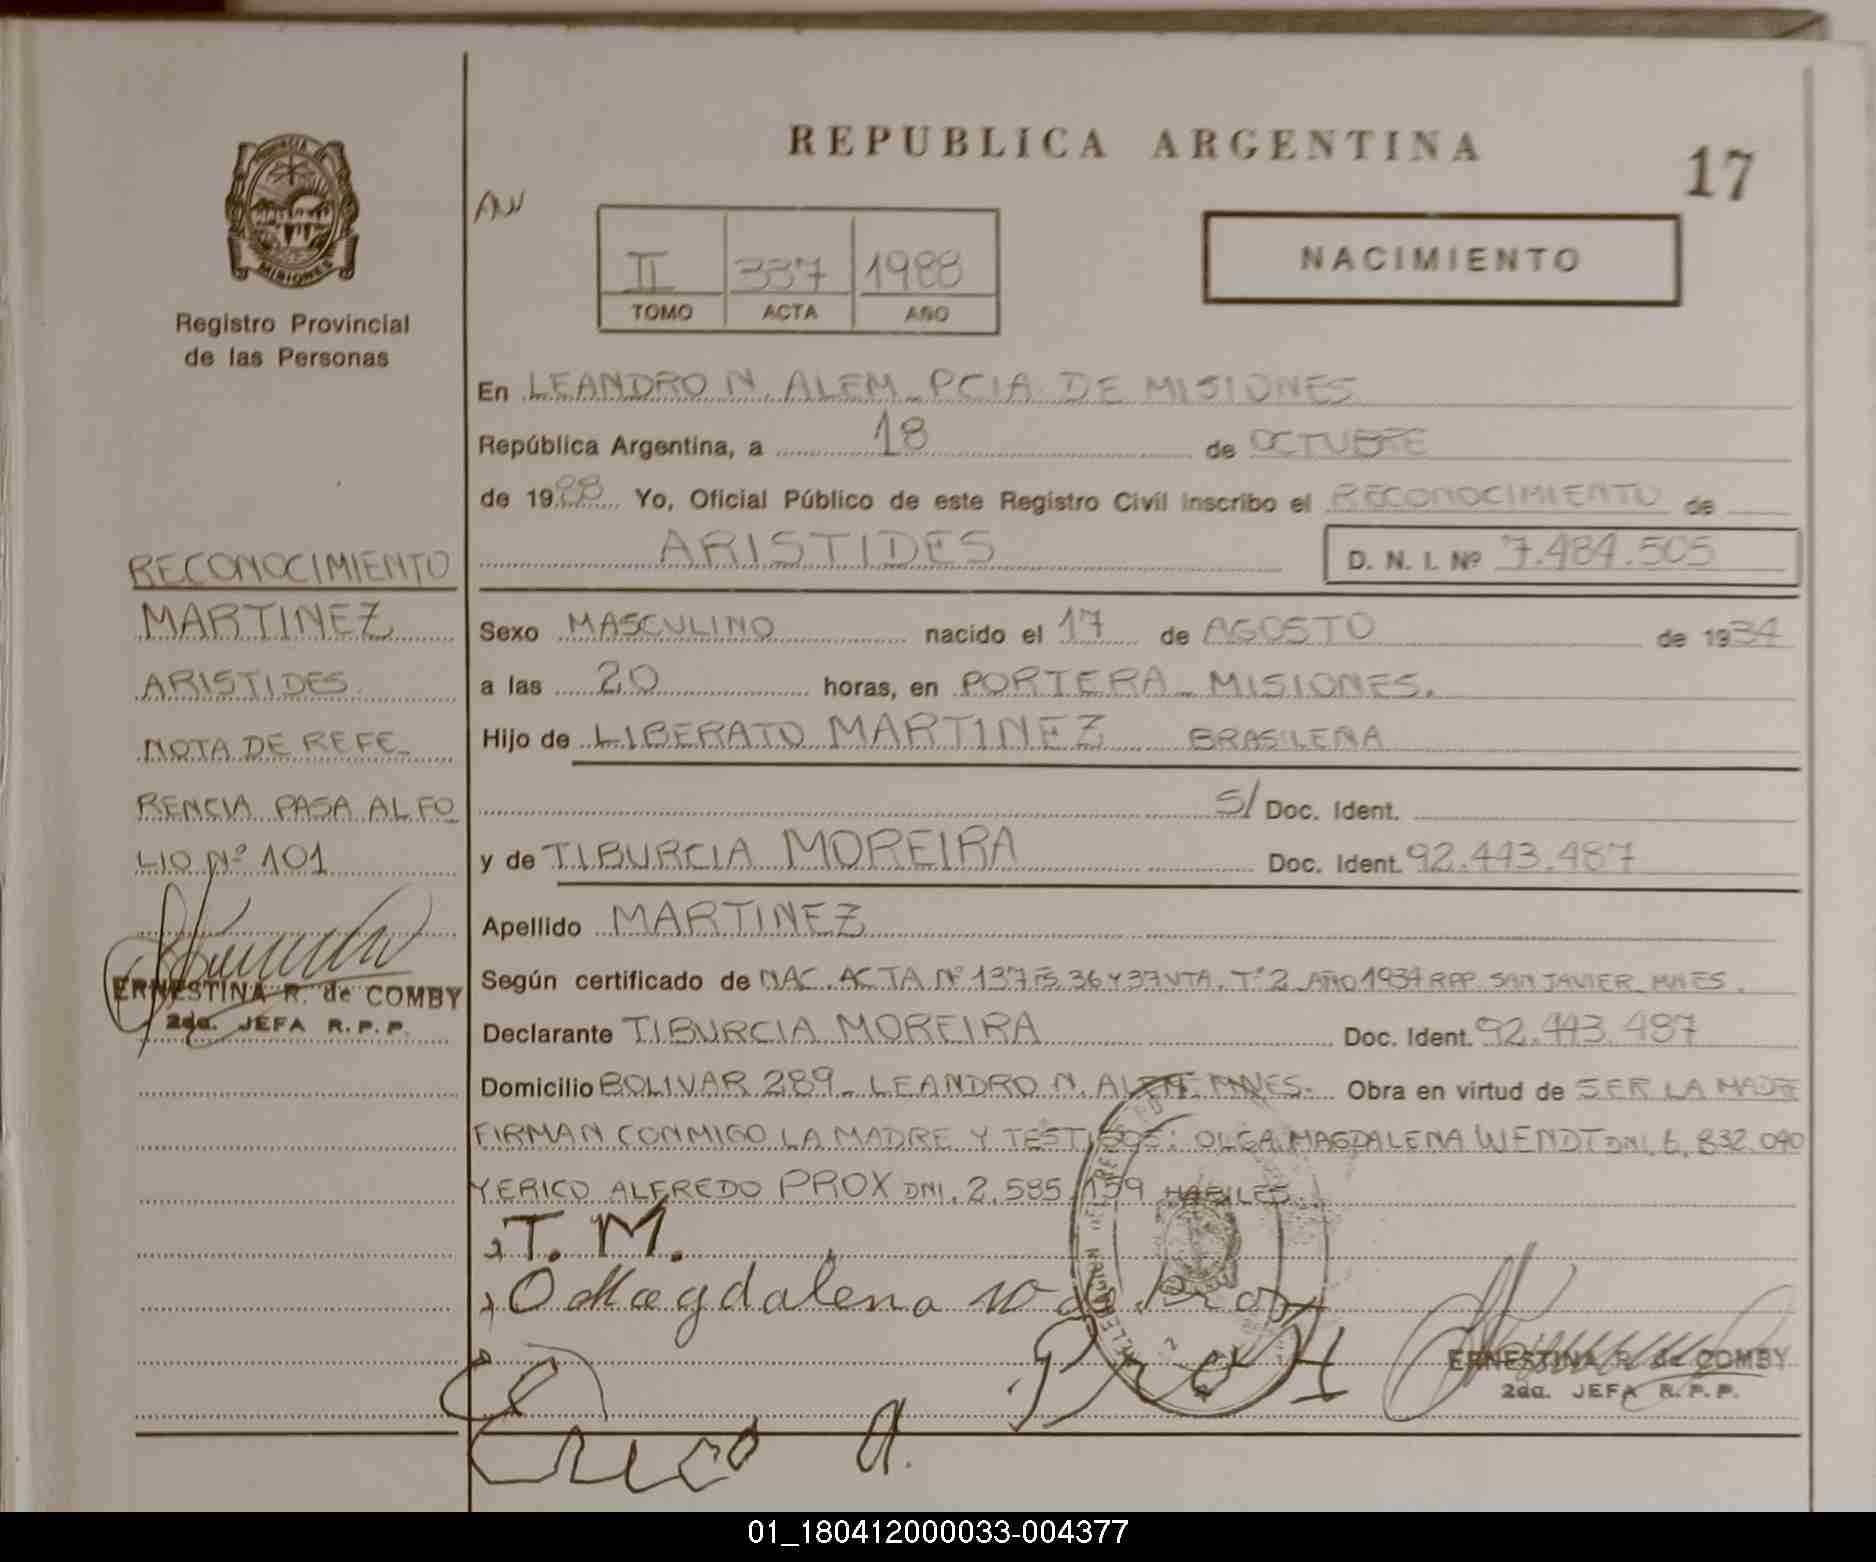 REPUBLICA ARGENTINA
17
PROVINCIA
MISIONES
Registro Provincial
de las Personas
AW
II 337 1988
TOMO ACTA AÑO
NACIMIENTO
En LEANDRO N. ALEM - PCIA DE MISIONES
República Argentina, a 18 de OCTUBRE
de 1988 Yo, Oficial Público de este Registro Civil inscribo el RECONOCIMIENTO de
ARISTIDES D. N. I. Nº 7.484.505
Sexo MASCULINO nacido el 17 de AGOSTO de 1934
a las 20 horas, en PORTERA - MISIONES.
Hijo de LIBERATO MARTINEZ BRASILEÑA
S/ Doc. Ident.
y de TIBURCIA MOREIRA Doc. Ident. 92.443.487
Apellido MARTINEZ
Según certificado de NAC. ACTA Nº 137 FS 36 Y 37 VTA. Tº 2 AÑO 1934 RPP. SAN JAVIER MNES.
Declarante TIBURCIA MOREIRA Doc. Ident. 92.443.487
Domicilio BOLIVAR 289 - LEANDRO N. ALEM MNES. Obra en virtud de SER LA MADRE
FIRMAN CONMIGO LA MADRE Y TESTIGOS: OLGA MAGDALENA WENDT DNI. 6.832.090
Y ERICO ALFREDO PROX DNI. 2.585.159 HABILES.
T. M.
O Magdalena W de Prox
Erico A. Prox
ERNESTINA R. de COMBY
2da. JEFA R. P. P.
RECONOCIMIENTO
MARTINEZ
ARISTIDES
NOTA DE REFE-
RENCIA PASA AL FO
LIO Nº 101
ERNESTINA R. de COMBY
2da. JEFA R. P. P.
01_180412000033-004377